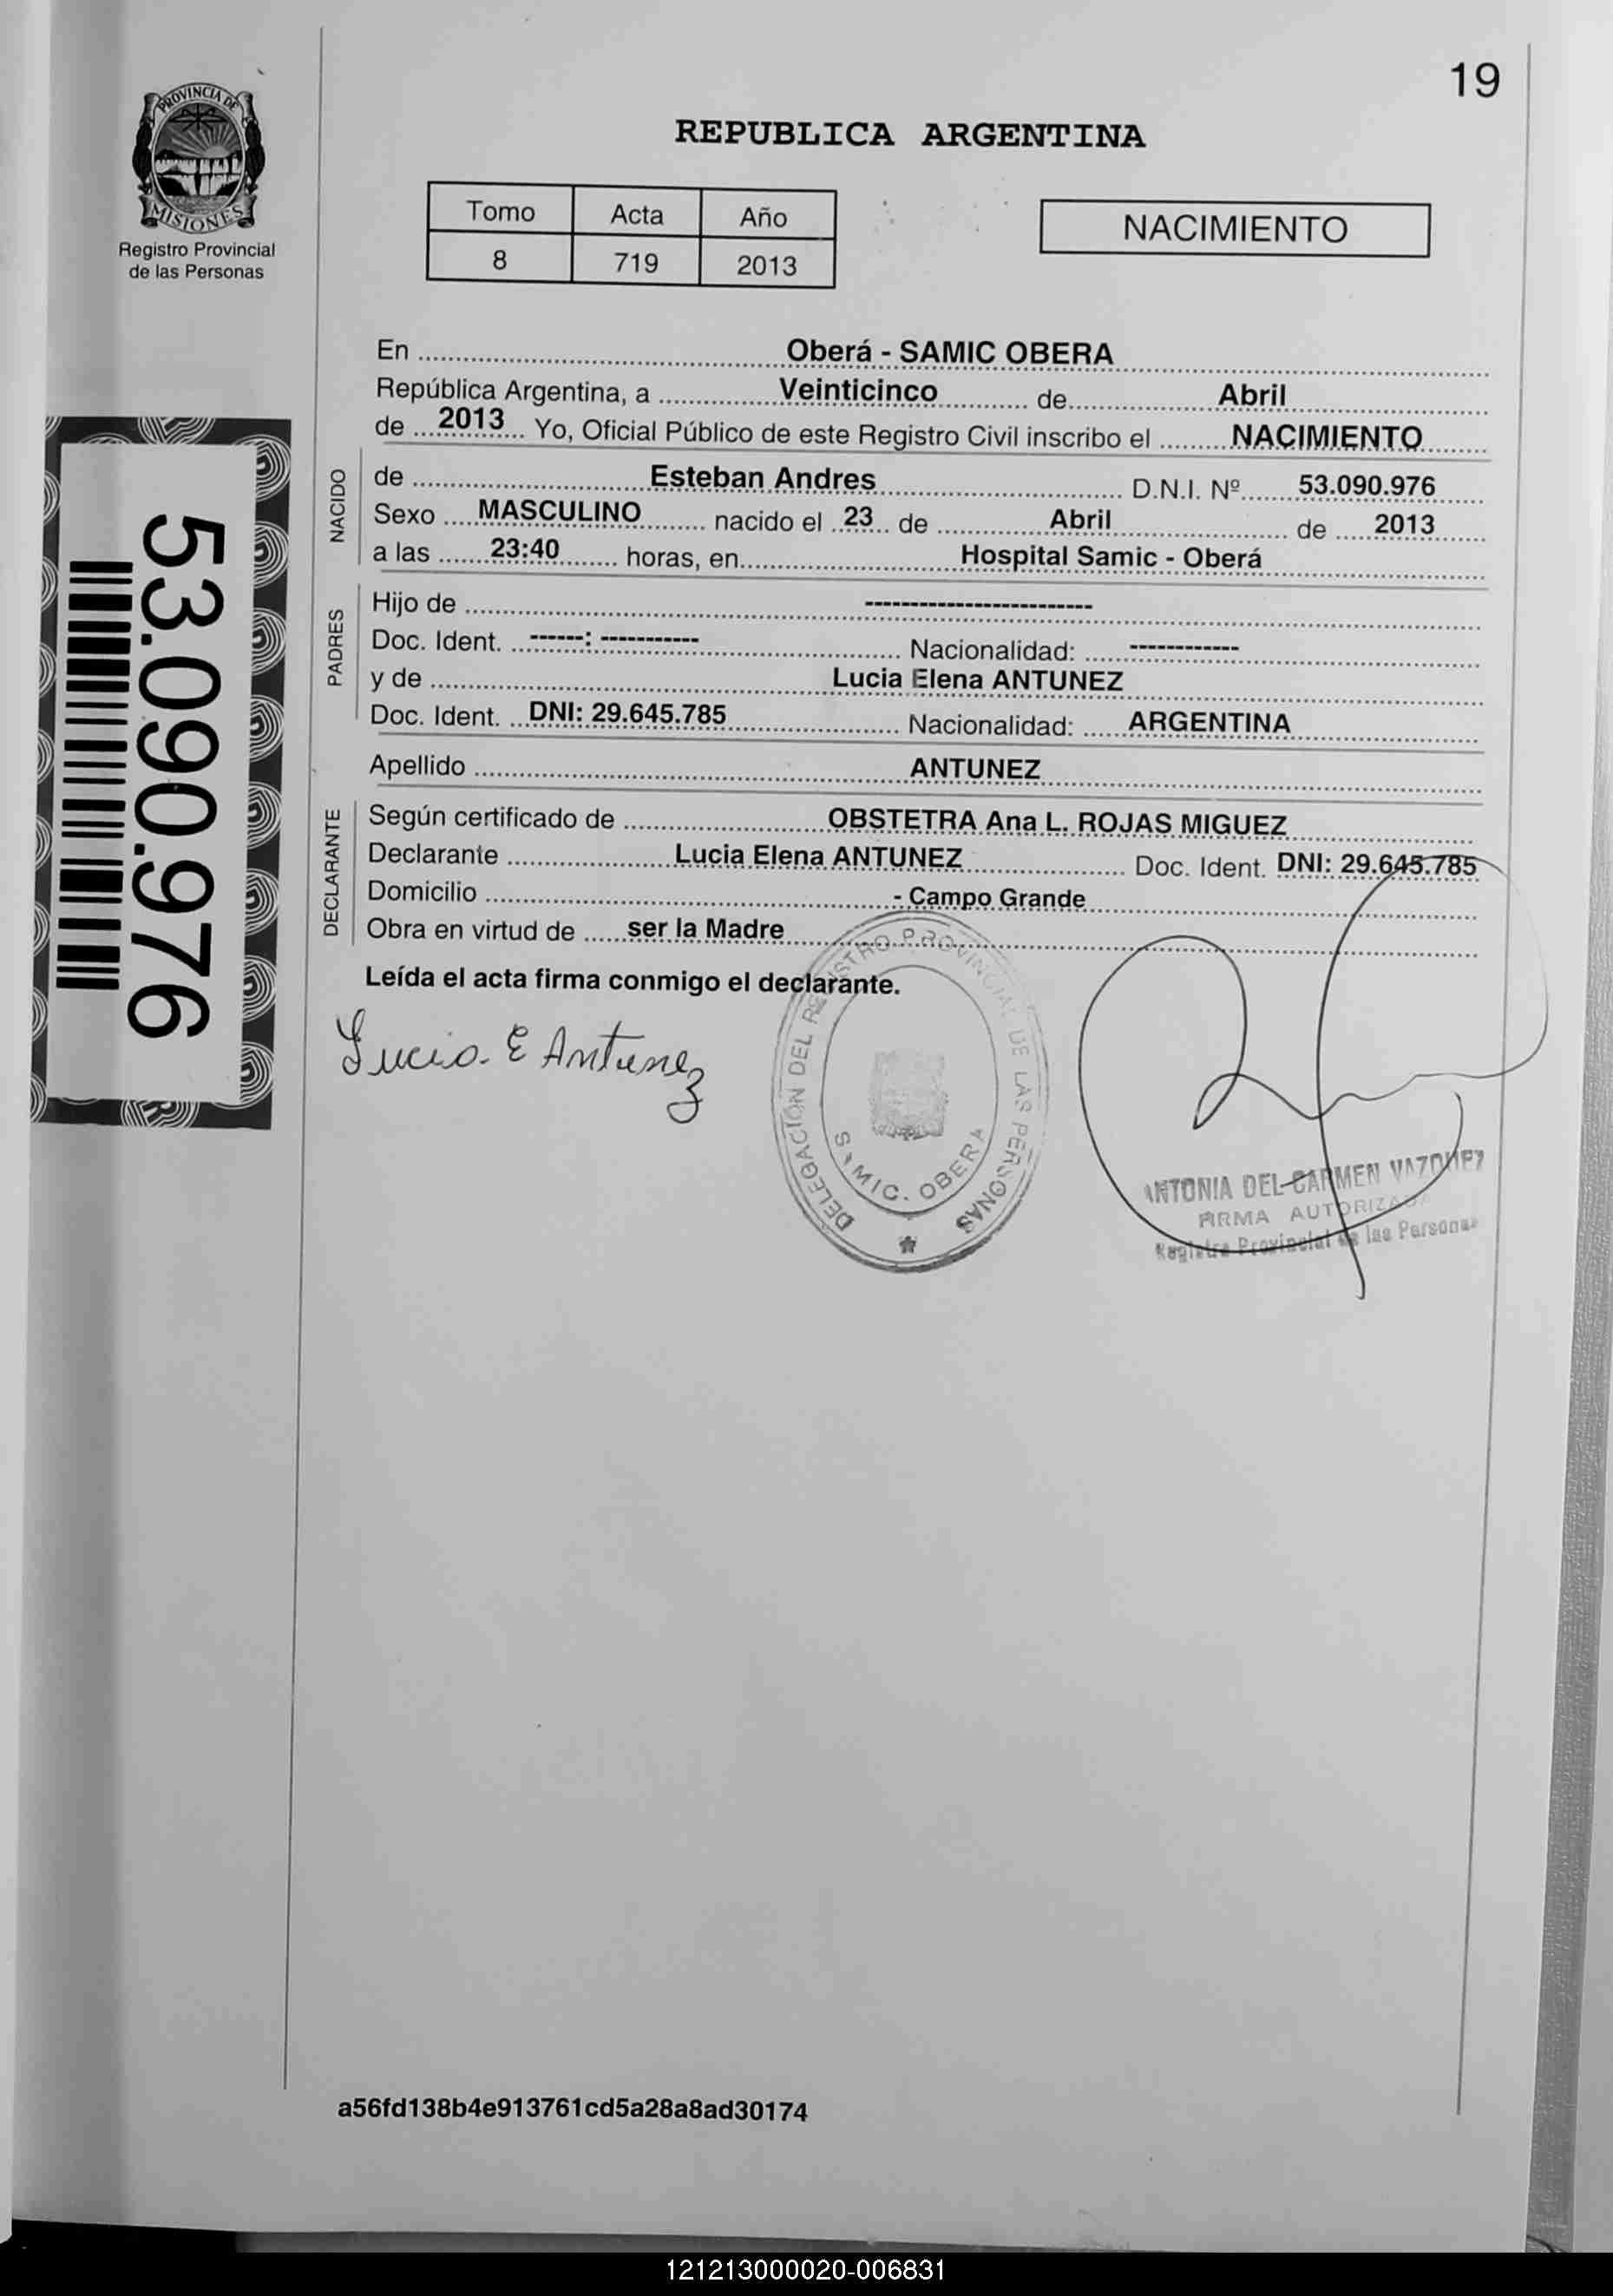 19
PROVINCIA DE
MISIONES
Registro Provincial
de las Personas
REPUBLICA ARGENTINA
Tomo Acta Año
8 719 2013
NACIMIENTO
En Oberá - SAMIC OBERA
República Argentina, a Veinticinco de Abril
de 2013 Yo, Oficial Público de este Registro Civil inscribo el NACIMIENTO
NACIDO
de Esteban Andres D.N.I. Nº 53.090.976
Sexo MASCULINO nacido el 23 de Abril de 2013
a las 23:40 horas, en Hospital Samic - Oberá
PADRES
Hijo de -------------------------
Doc. Ident. ------: ----------- Nacionalidad: ------------
y de Lucia Elena ANTUNEZ
Doc. Ident. DNI: 29.645.785 Nacionalidad: ARGENTINA
Apellido ANTUNEZ
DECLARANTE
Según certificado de OBSTETRA Ana L. ROJAS MIGUEZ
Declarante Lucia Elena ANTUNEZ Doc. Ident. DNI: 29.645.785
Domicilio - Campo Grande
Obra en virtud de ser la Madre
Leída el acta firma conmigo el declarante.
Lucia E Antunez
DELEGACIÓN DEL REGISTRO PROVINCIAL DE LAS PERSONAS
SAMIC. OBERA
ANTONIA DEL CARMEN VAZQUEZ
FIRMA AUTORIZADA
Registro Provincial de las Personas
53.090.976
a56fd138b4e913761cd5a28a8ad30174
121213000020-006831